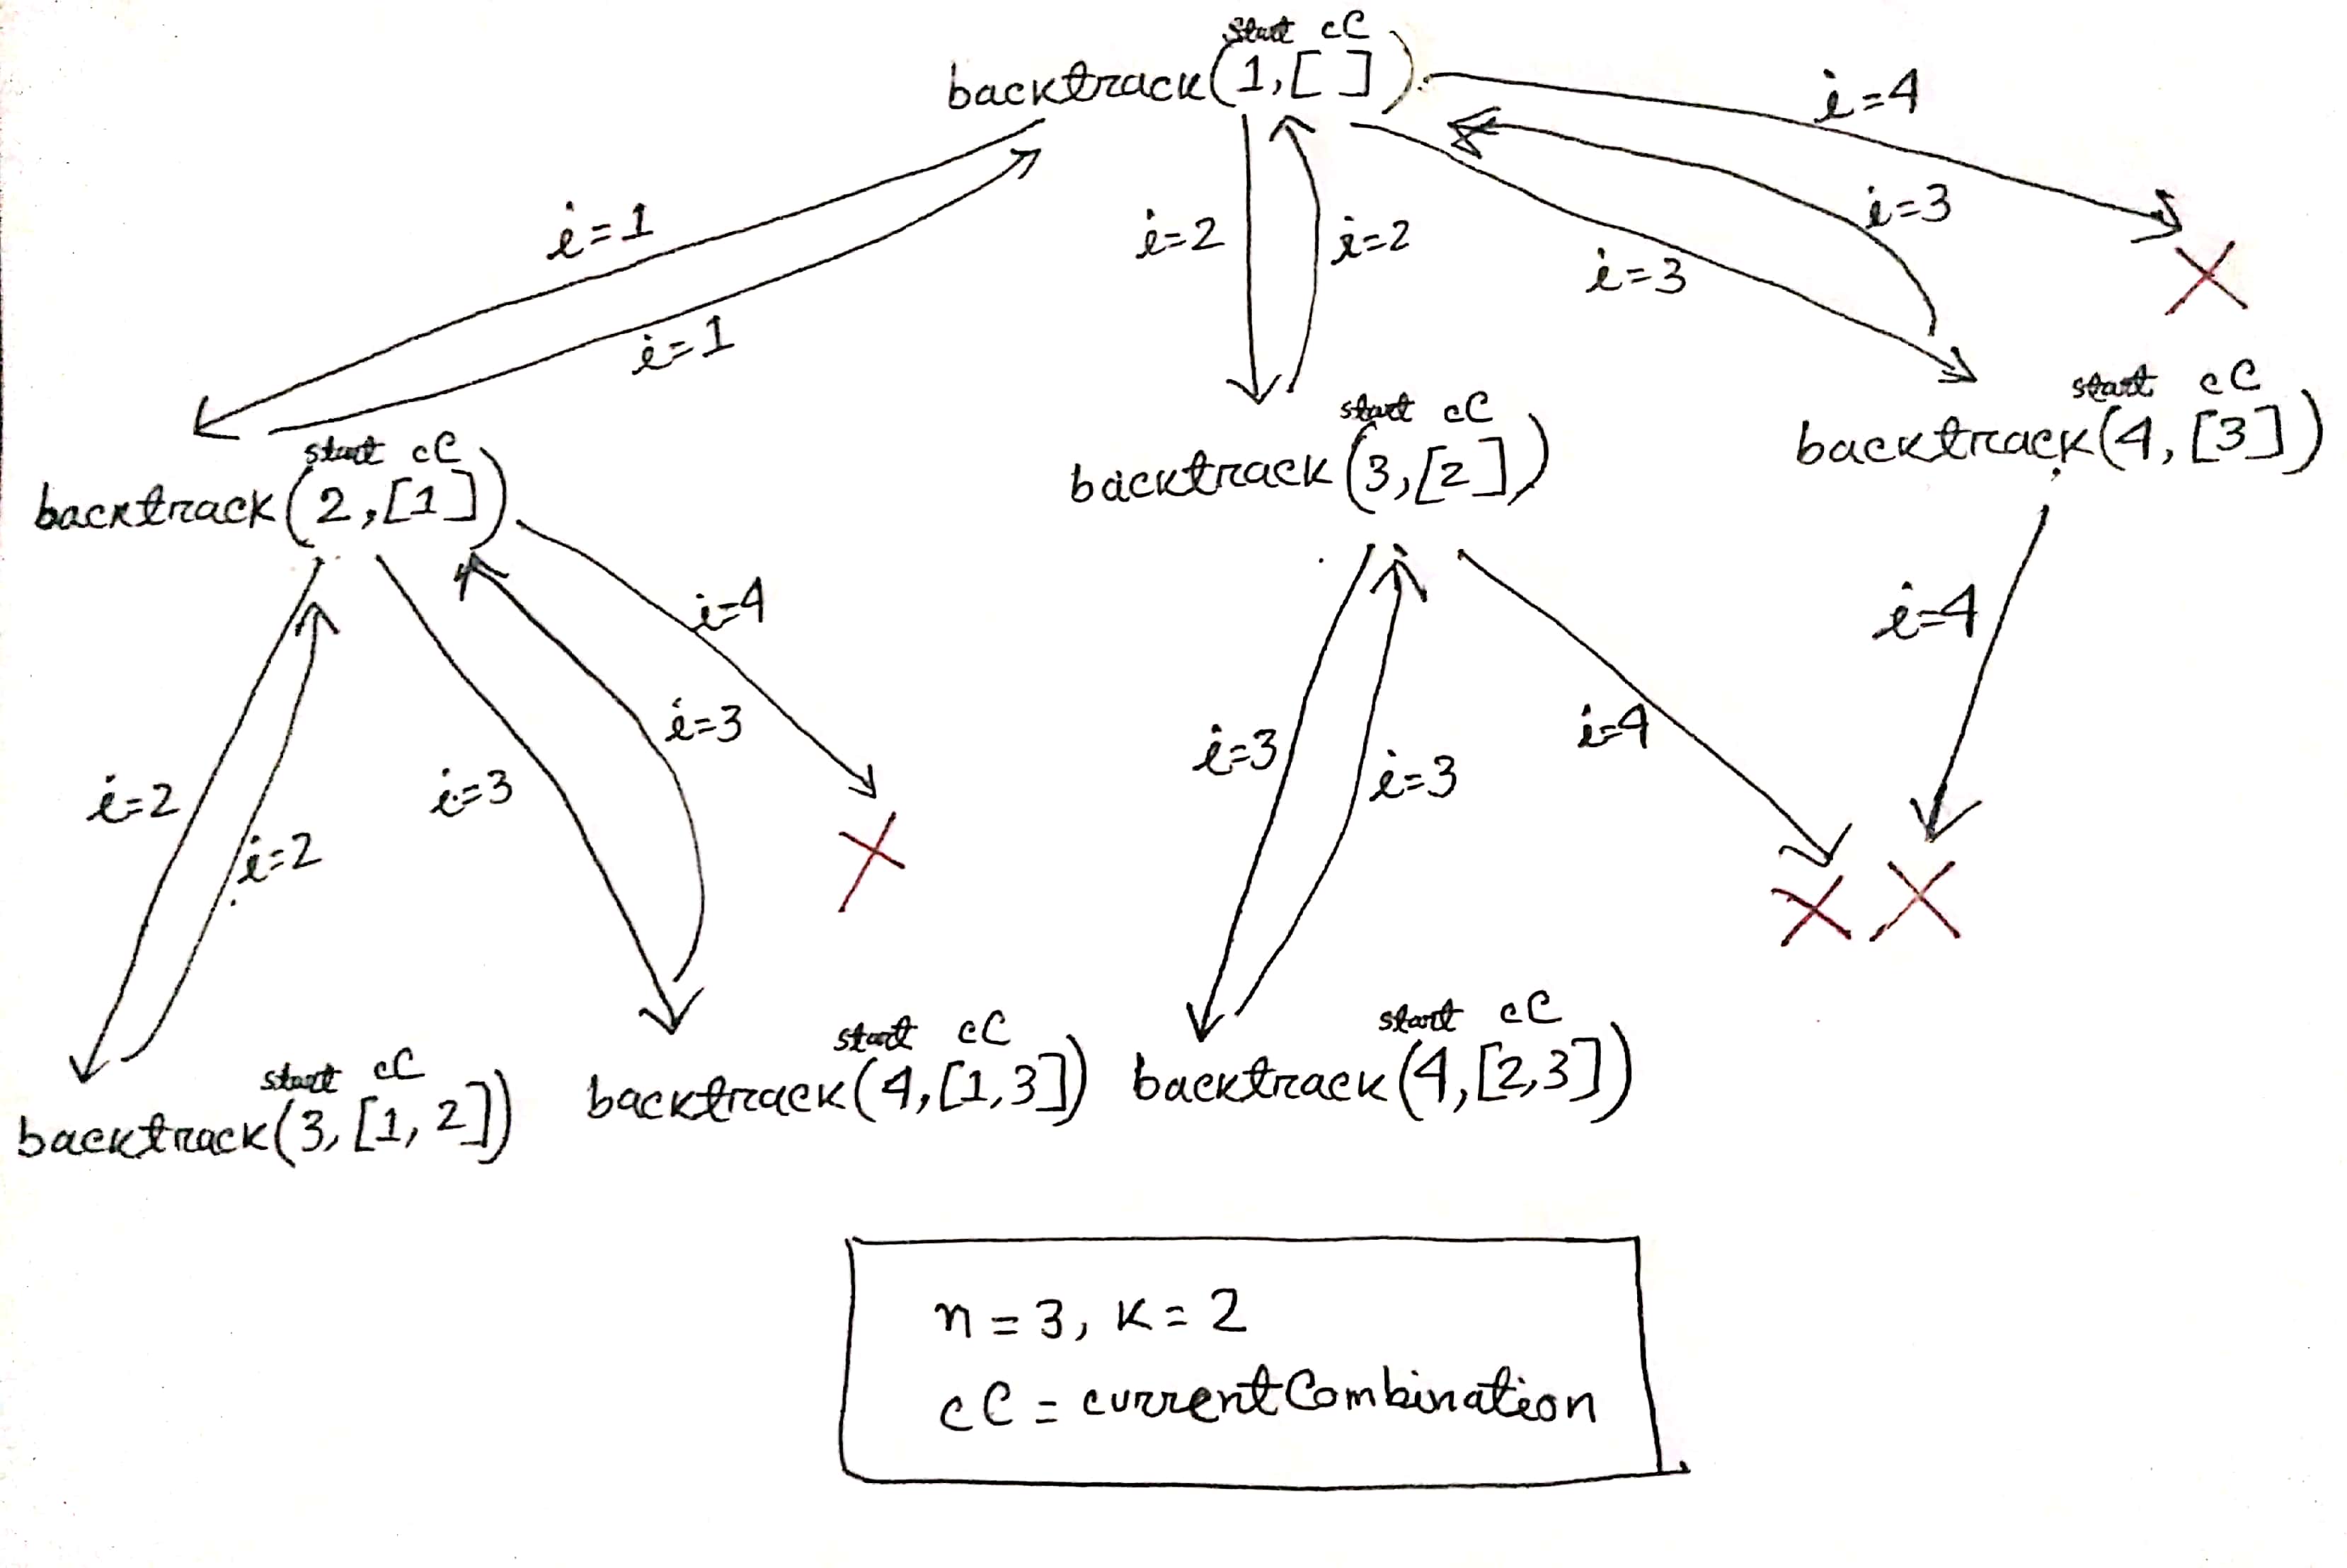 start cC
backtrack(1,[ ])
i=4
i=3
i=1
i=2
i=2
i=3
i=1
start cC
backtrack(4,[3])
start cC
backtrack(3,[2])
start cC
backtrack(2,[1])
i=4
i=4
i=3
i=4
i=3
i=3
i=2
i=3
i=2
start cC
backtrack(3,[1,2])
start cC
backtrack(4,[1,3])
start cC
backtrack(4,[2,3])
n=3, K=2
cC = currentCombination